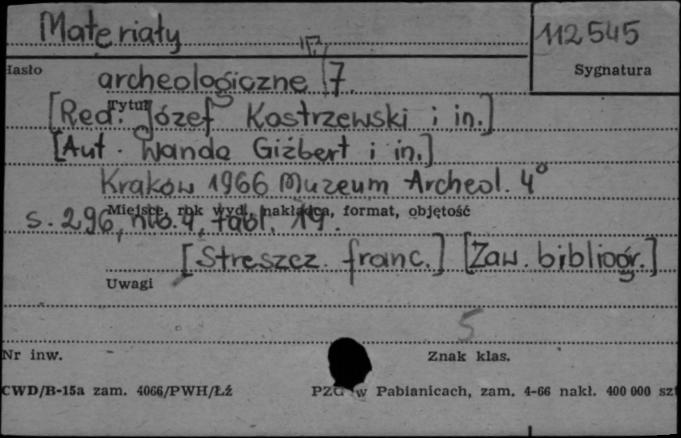 Materiały
112545
Hasło
Sygnatura
archeologiczne [7.
Tytuł
[Red. Józef Kostrzewski i in.]
[Aut. Wanda Giżbert i in.]
Kraków 1966 Muzeum Archeol. 4°
Miejsce, rok wyd., nakładca, format, objętość
s. 296, nlb. 4, tabl. 19.
[Streszcz. franc.] [Zaw. bibliogr.]
Uwagi
5
Nr inw.
Znak klas.
CWD/B-15a zam. 4066/PWH/Łź
PZG w Pabianicach, zam. 4-66 nakł. 400 000 szt